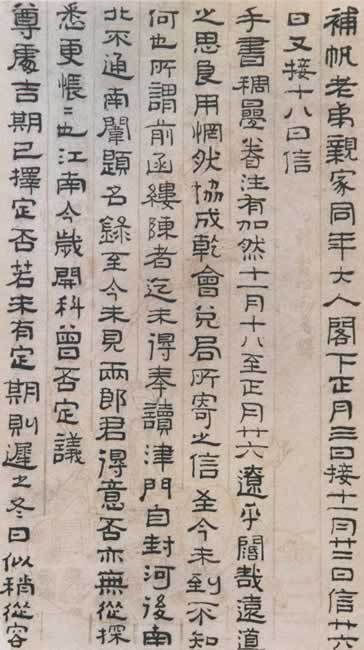 補帆老弟親家同年大人閣下正月三日接十一月廿三日信廿六
日又接十八日信
手書稠疊眷注有加然十一月十八至正月廿六遼乎闊哉遠道
之思良用惘然協成乾會兌局所寄之信至今未到不知
何也所謂前函縷陳者迄未得奉讀津門自封河後南
北不通南闈題名錄至今未見兩郎君得意否亦無從探
悉更悵〻也江南今歲開科曾否定議
尊處吉期已擇定否若未有定期則遲之冬日似稍從容